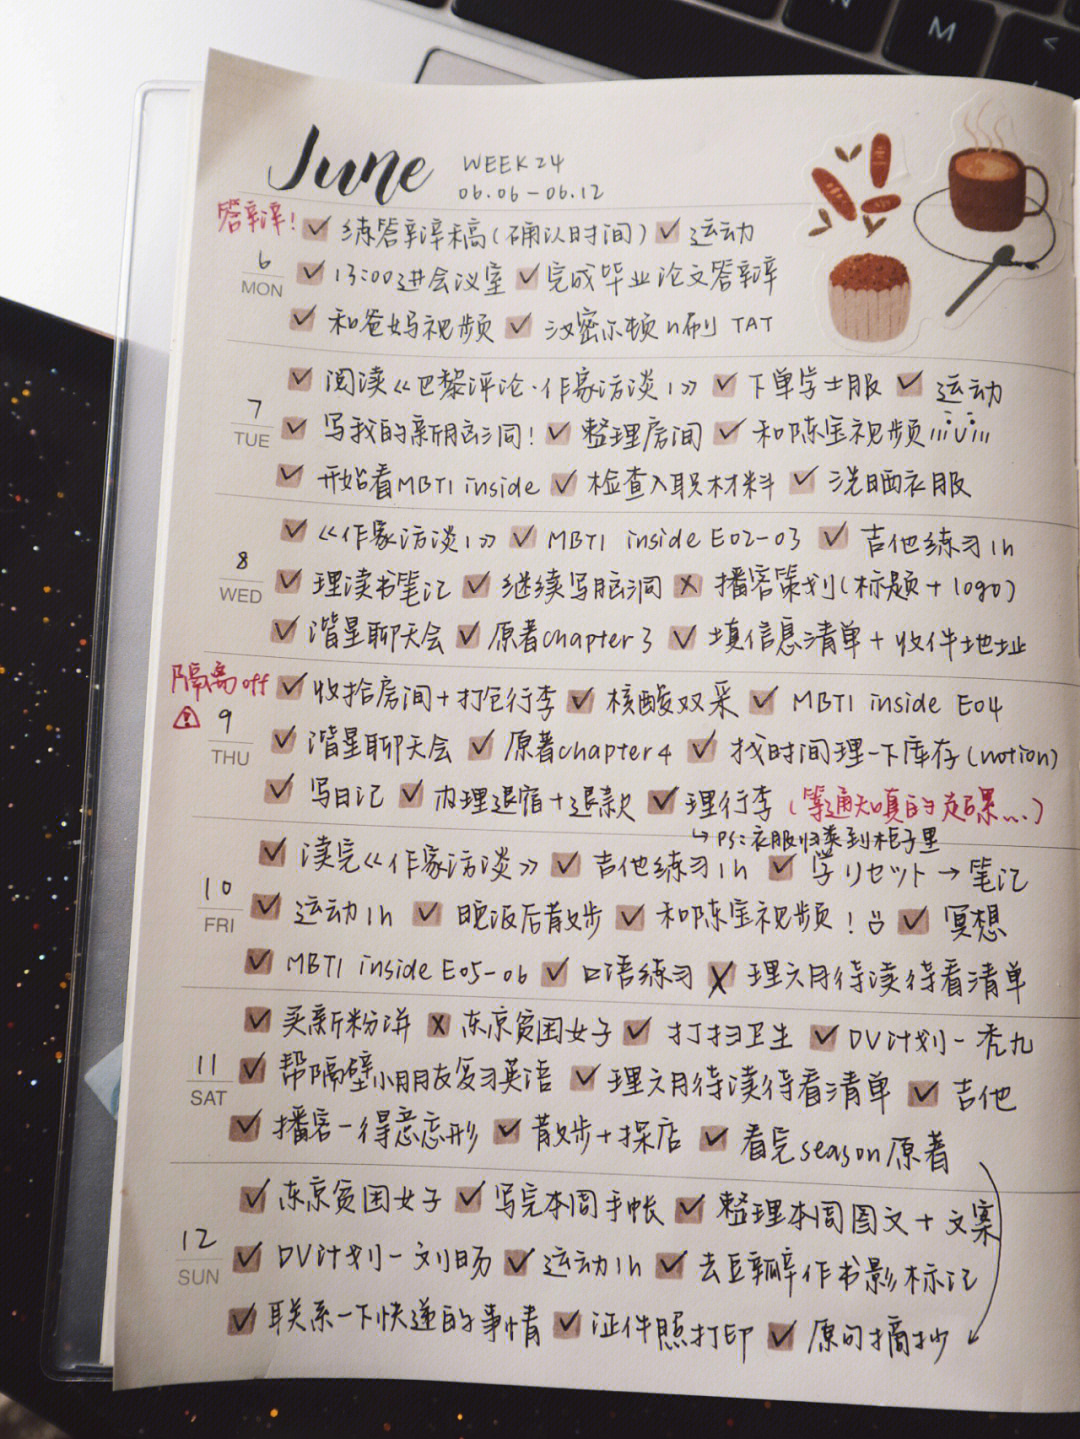 M
<
June WEEK24
06.06-06.12
答辩! ✓ 练答辩稿(确认时间) ✓ 运动
6 MON ✓ 13:00进会议室 ✓ 完成毕业论文答辩
✓ 和爸妈视频 ✓ 汉密尔顿n刷 TAT
✓ 阅读《巴黎评论·作家访谈1》 ✓ 下单学士服 ✓ 运动
7 TUE ✓ 写我的新脑洞! ✓ 整理房间 ✓ 和陈宝视频
✓ 开始看MBTI inside ✓ 检查入职材料 ✓ 洗晒衣服
✓ 《作家访谈1》 ✓ MBTI inside E02-03 ✓ 吉他练习1h
8 WED ✓ 理读书笔记 ✓ 继续写脑洞 x 播客策划(标题+logo)
✓ 谐星聊天会 ✓ 原著chapter3 ✓ 填信息清单+收件地址
隔离off ✓ 收拾房间+打包行李 ✓ 核酸双采 ✓ MBTI inside E04
9 THU ✓ 谐星聊天会 ✓ 原著chapter4 ✓ 找时间理一下库存(notion)
✓ 写日记 ✓ 办理退宿+退款 ✓ 理行李(等通知真的
↳ PS:衣服归类到柜子里
✓ 读完《作家访谈》 ✓ 吉他练习1h ✓ 学リセット→笔记
10 FRI ✓ 运动1h ✓ 晚饭后散步 ✓ 和陈宝视频! ✓ 冥想
✓ MBTI inside E05-06 ✓ 口语练习 x 理六月待读待看清单
✓ 买新粉饼 x 东京贫困女子 ✓ 打扫卫生 ✓ DV计划-秃九
11 SAT ✓ 帮隔壁小朋友复习英语 ✓ 理六月待读待看清单 ✓ 吉他
✓ 播客-得意忘形 ✓ 散步+探店 ✓ 看完season原著
✓ 东京贫困女子 ✓ 写完本周手帐 ✓ 整理本周图文+文案
12 SUN ✓ DV计划-刘旸 ✓ 运动1h ✓ 去豆瓣作书影标记
✓ 联系一下快递的事情 ✓ 证件照打印 ✓ 原句摘抄